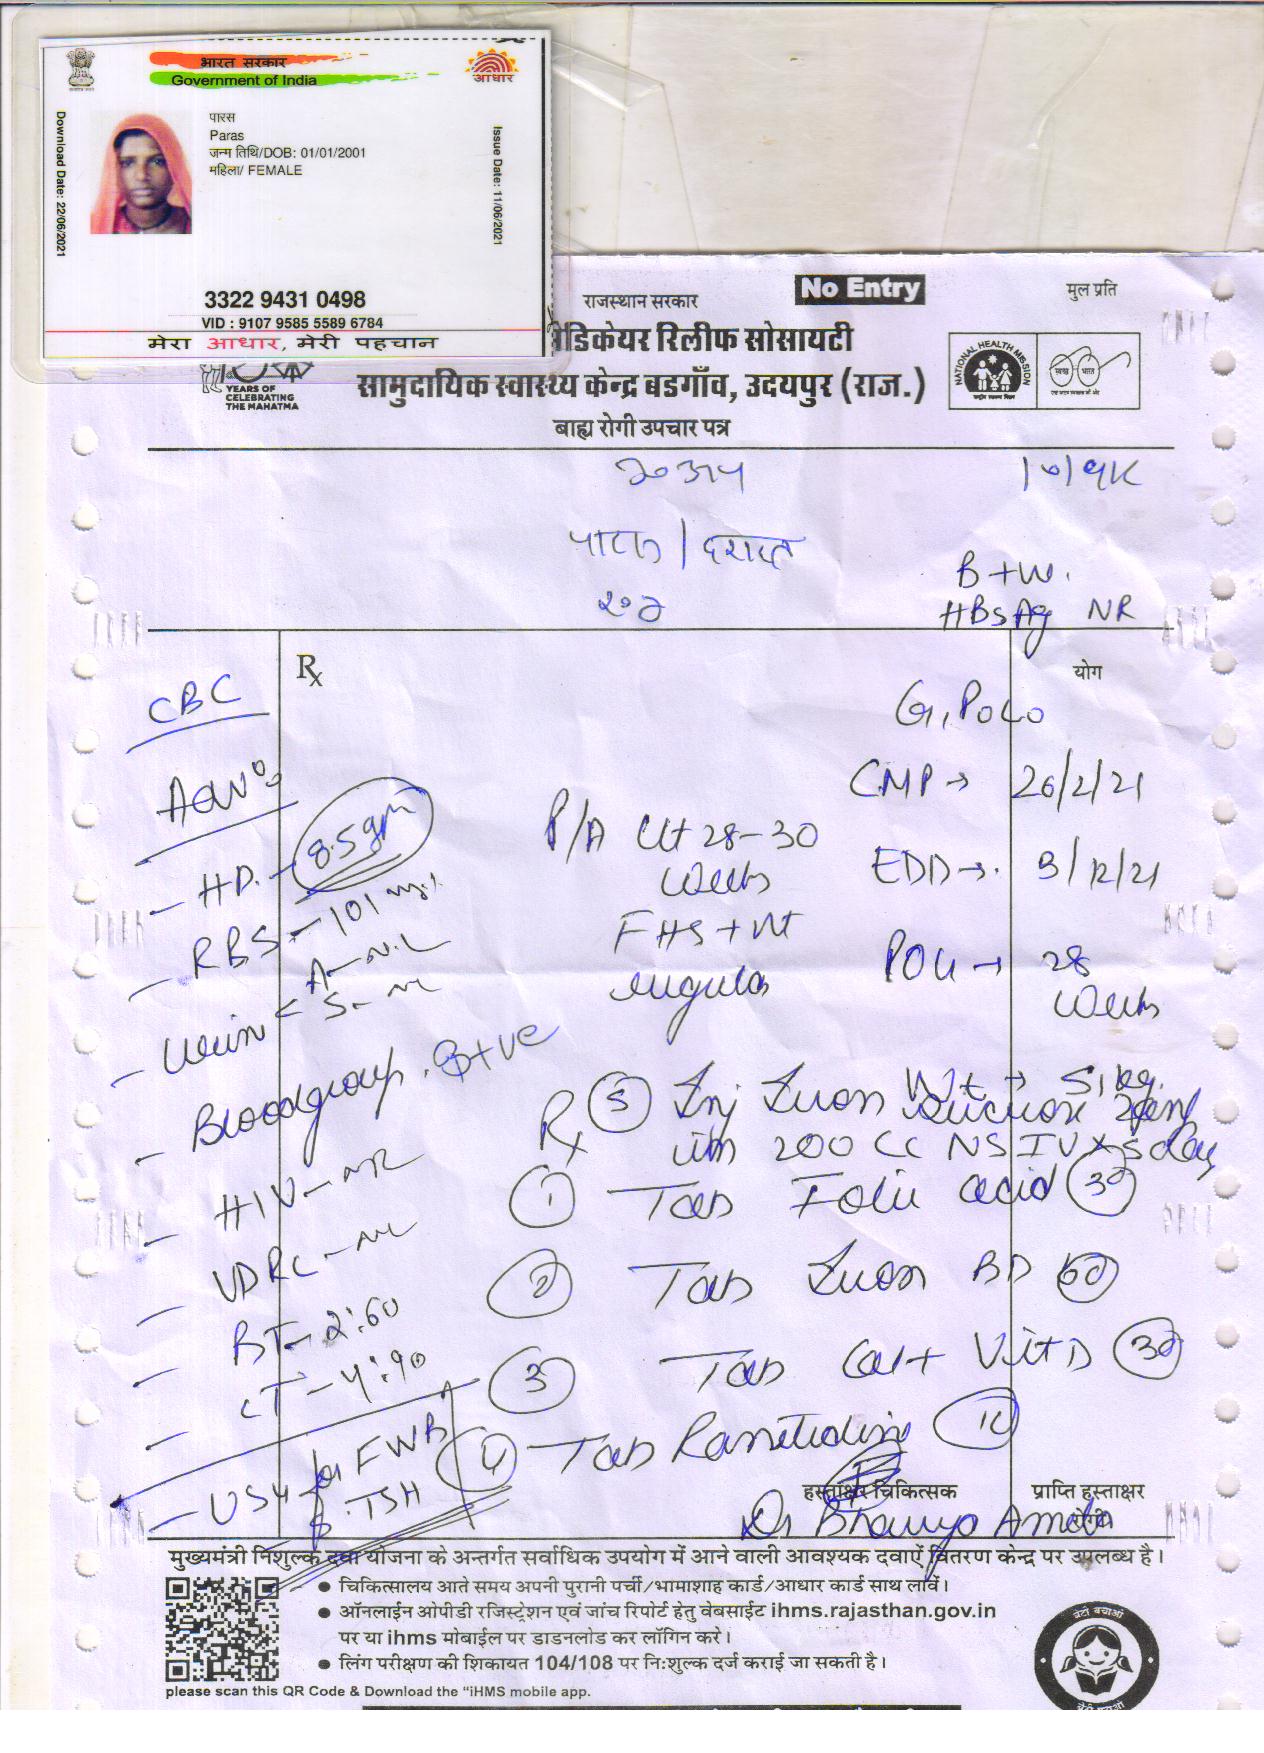 भारत सरकार
Government of India
आधार
पारस
Paras
जन्म तिथि/DOB: 01/01/2001
महिला/ FEMALE
Download Date: 22/06/2021
Issue Date: 11/06/2021
3322 9431 0498
VID : 9107 9585 5589 6784
मेरा आधार, मेरी पहचान
No Entry
मुल प्रति
राजस्थान सरकार
मेडिकेयर रिलीफ सोसायटी
YEARS OF
CELEBRATING
THE MAHATMA
सामुदायिक स्वास्थ्य केन्द्र बडगाँव, उदयपुर (राज.)
NATIONAL HEALTH MISSION
बाह्य रोगी उपचार पत्र
B +W.
HBsAg NR
Rx
योग
CBC
G1P0L0
LMP → 26/2/21
P/A Ut 28-30
weeks
EDD → 3/12/21
- HB - 8.5 gm
FHS + nt
regular
- RBS - 101
POG → 28
weeks
- Urin < A - NIL
S - nil
- Bloodgroup. B+ve
Wt → 51 kg.
Rx
(5) Inj Iron sucrose
in 200 CC NS IV x 5 day
(1) Tab Folic acid (30)
- HIV - NR
(2) Tab Iron BD (60)
- VDRL -
- BT - 2':50
(3) Tab Cal + Vit D (30)
- CT - 4':90
(4) Tab Ranitidine
- USG for FWB
TSH
हस्ताक्षर चिकित्सक
प्राप्ति हस्ताक्षर
रोगी
Dr Bhavya Ameta
मुख्यमंत्री निशुल्क दवा योजना के अन्तर्गत सर्वाधिक उपयोग में आने वाली आवश्यक दवाऐं वितरण केन्द्र पर उपलब्ध है।
• चिकित्सालय आते समय अपनी पुरानी पर्ची/भामाशाह कार्ड/आधार कार्ड साथ लावें।
• ऑनलाईन ओपीडी रजिस्ट्रेशन एवं जांच रिपोर्ट हेतु वेबसाईट ihms.rajasthan.gov.in
पर या ihms मोबाईल पर डाडनलोड कर लॉगिन करे।
• लिंग परीक्षण की शिकायत 104/108 पर निःशुल्क दर्ज कराई जा सकती है।
please scan this QR Code & Download the "iHMS mobile app.
बेटी बचाओ